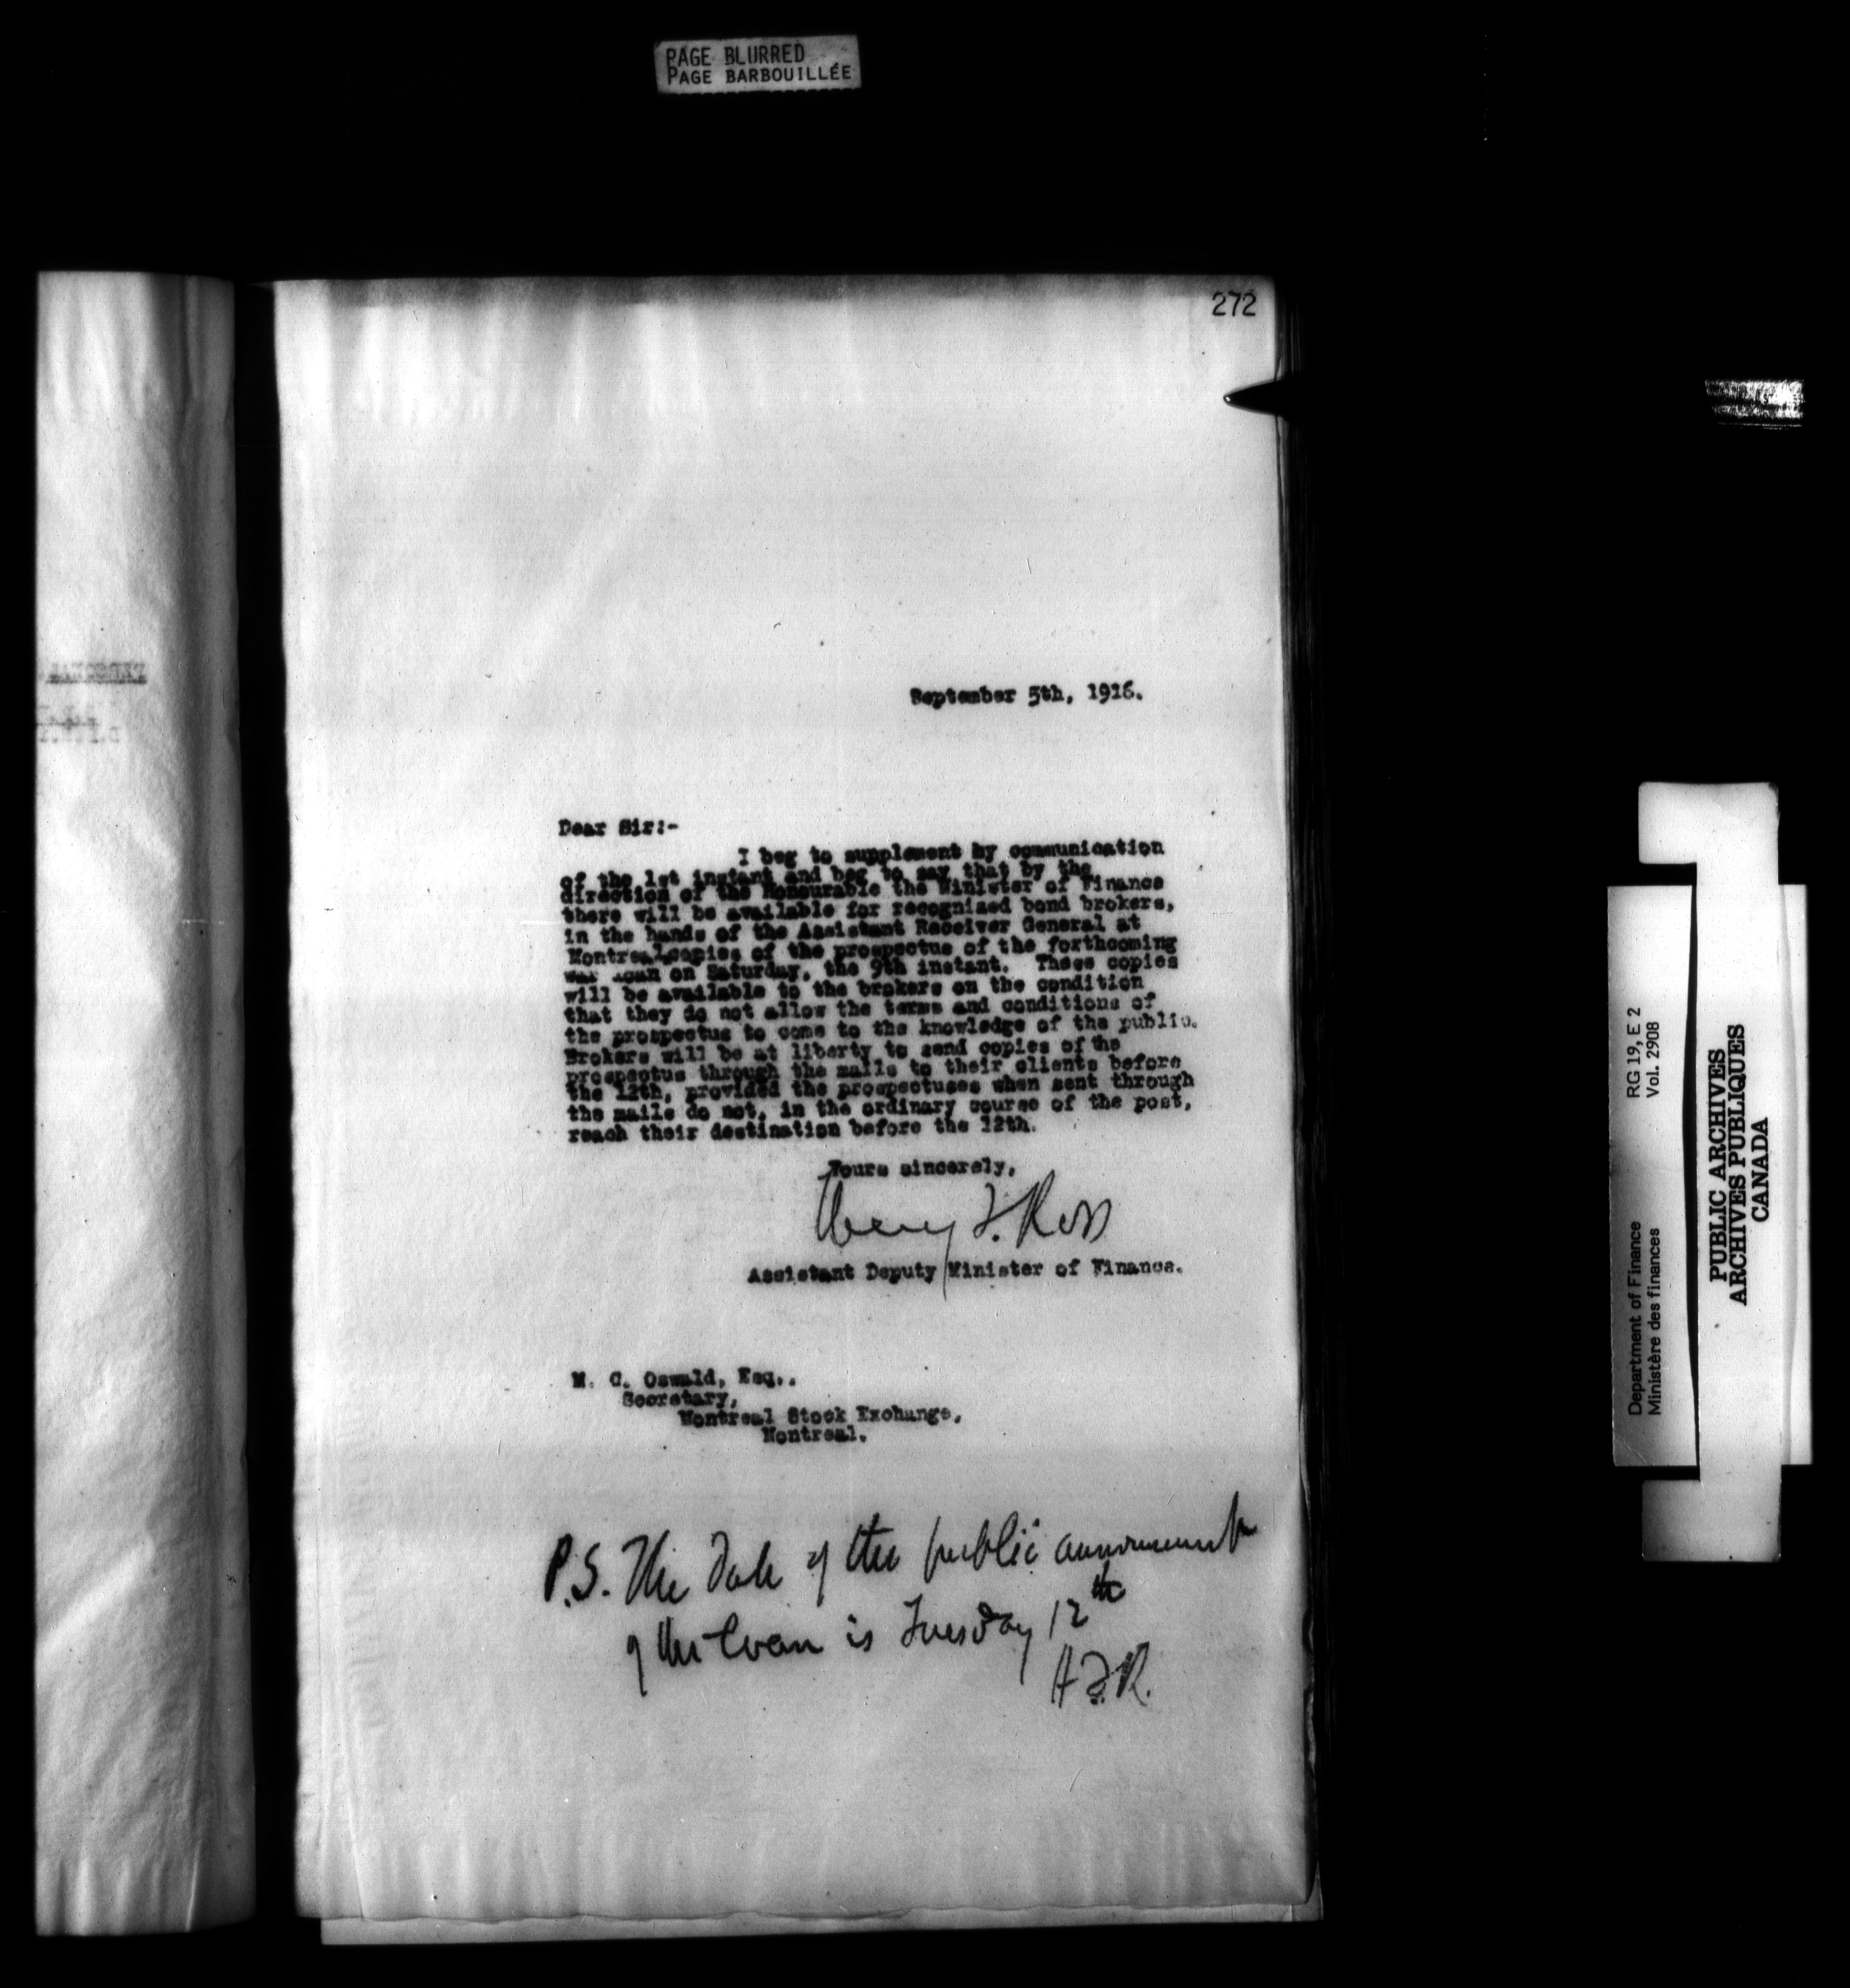 PAGE BLURRED
PAGE BARBOUILLÉE
272
September 5th, 1916.
Dear Sir:-
I beg to supplement my communication
of the 1st instant and beg to say that by the
direction of the Honourable the Minister of Finance
there will be available for recognized bond brokers,
in the hands of the Assistant Receiver General at
Montreal, copies of the prospectus of the forthcoming
war loan on Saturday, the 9th instant. These copies
will be available to the brokers on the condition
that they do not allow the terms and conditions of
the prospectus to come to the knowledge of the public.
Brokers will be at liberty to send copies of the
prospectus through the mails to their clients before
the 12th, provided the prospectuses when sent through
the mails do not, in the ordinary course of the post,
reach their destination before the 12th.
Yours sincerely,
Henry T. Ross
Assistant Deputy Minister of Finance.
M. C. Oswald, Esq.,
Secretary,
Montreal Stock Exchange,
Montreal.
P.S. The date of the public announcement
of the loan is Tuesday 12th
H.T.R.
Department of Finance RG 19, E 2
Ministère des finances Vol. 2908
PUBLIC ARCHIVES
ARCHIVES PUBLIQUES
CANADA